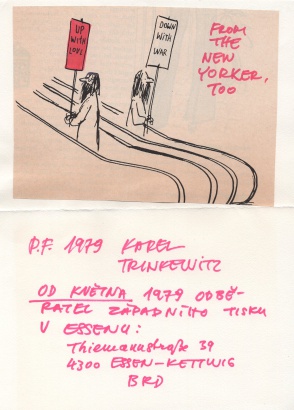 UP
WITH
LOVE
DOWN
WITH
WAR
FROM
THE
NEW
YORKER,
TOO
P.F. 1979 KAREL
TRINKEWITZ
OD KVĚTNA 1979 ODBĚ-
RATEL ZÁPADNÍHO TISKU
V ESSENU:
Thiemannstraße 39
4300 ESSEN-KETTWIG
BRD